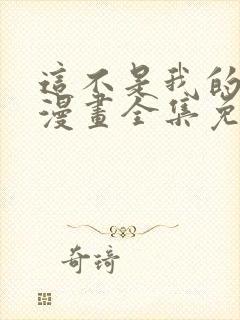 這不是我的
漫畫全集免
奇琦